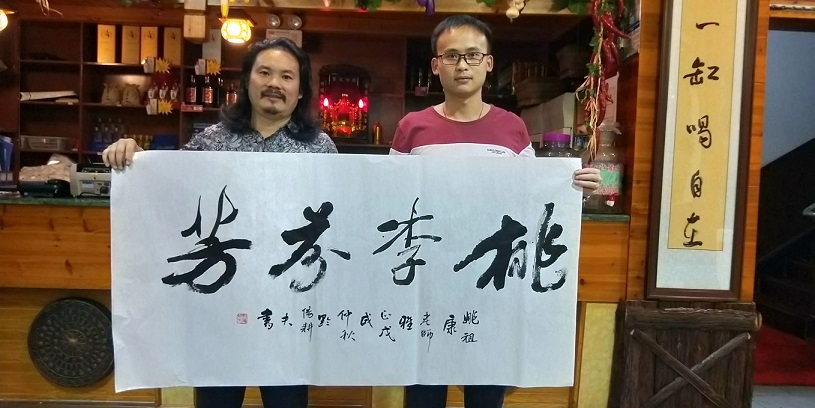 桃李芬芳
姚祖康老師雅正戊戌仲秋黔耕夫書
一缸喝自在